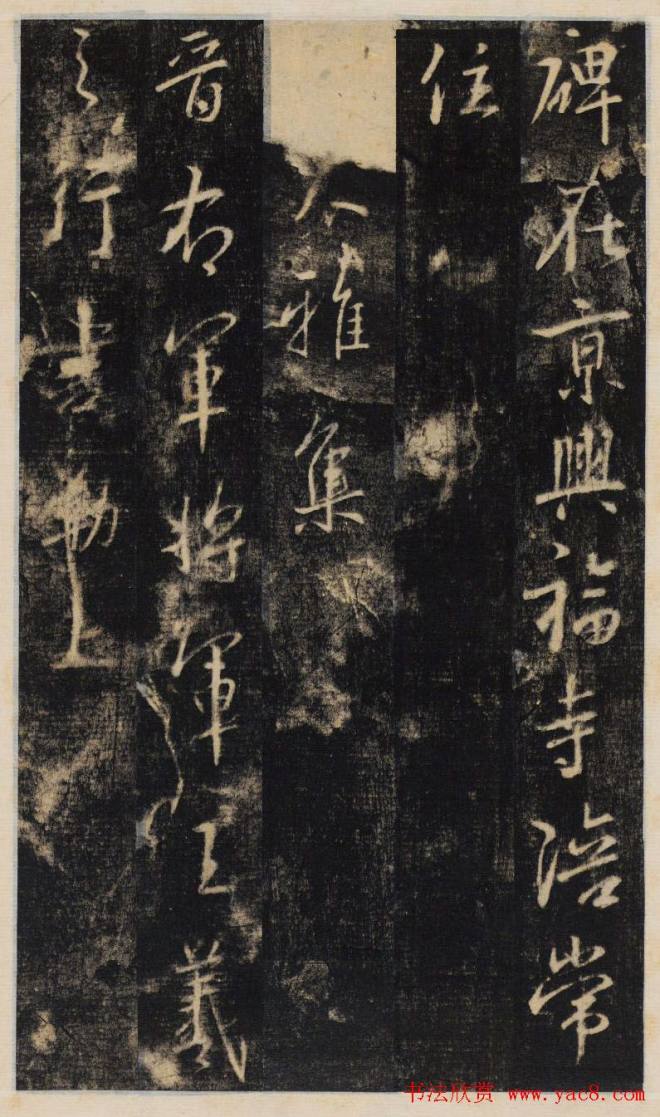 碑在京興福寺陪常
住
大雅集
晉右軍將軍王羲
之行書勒上
书法欣赏 www.yac8.com